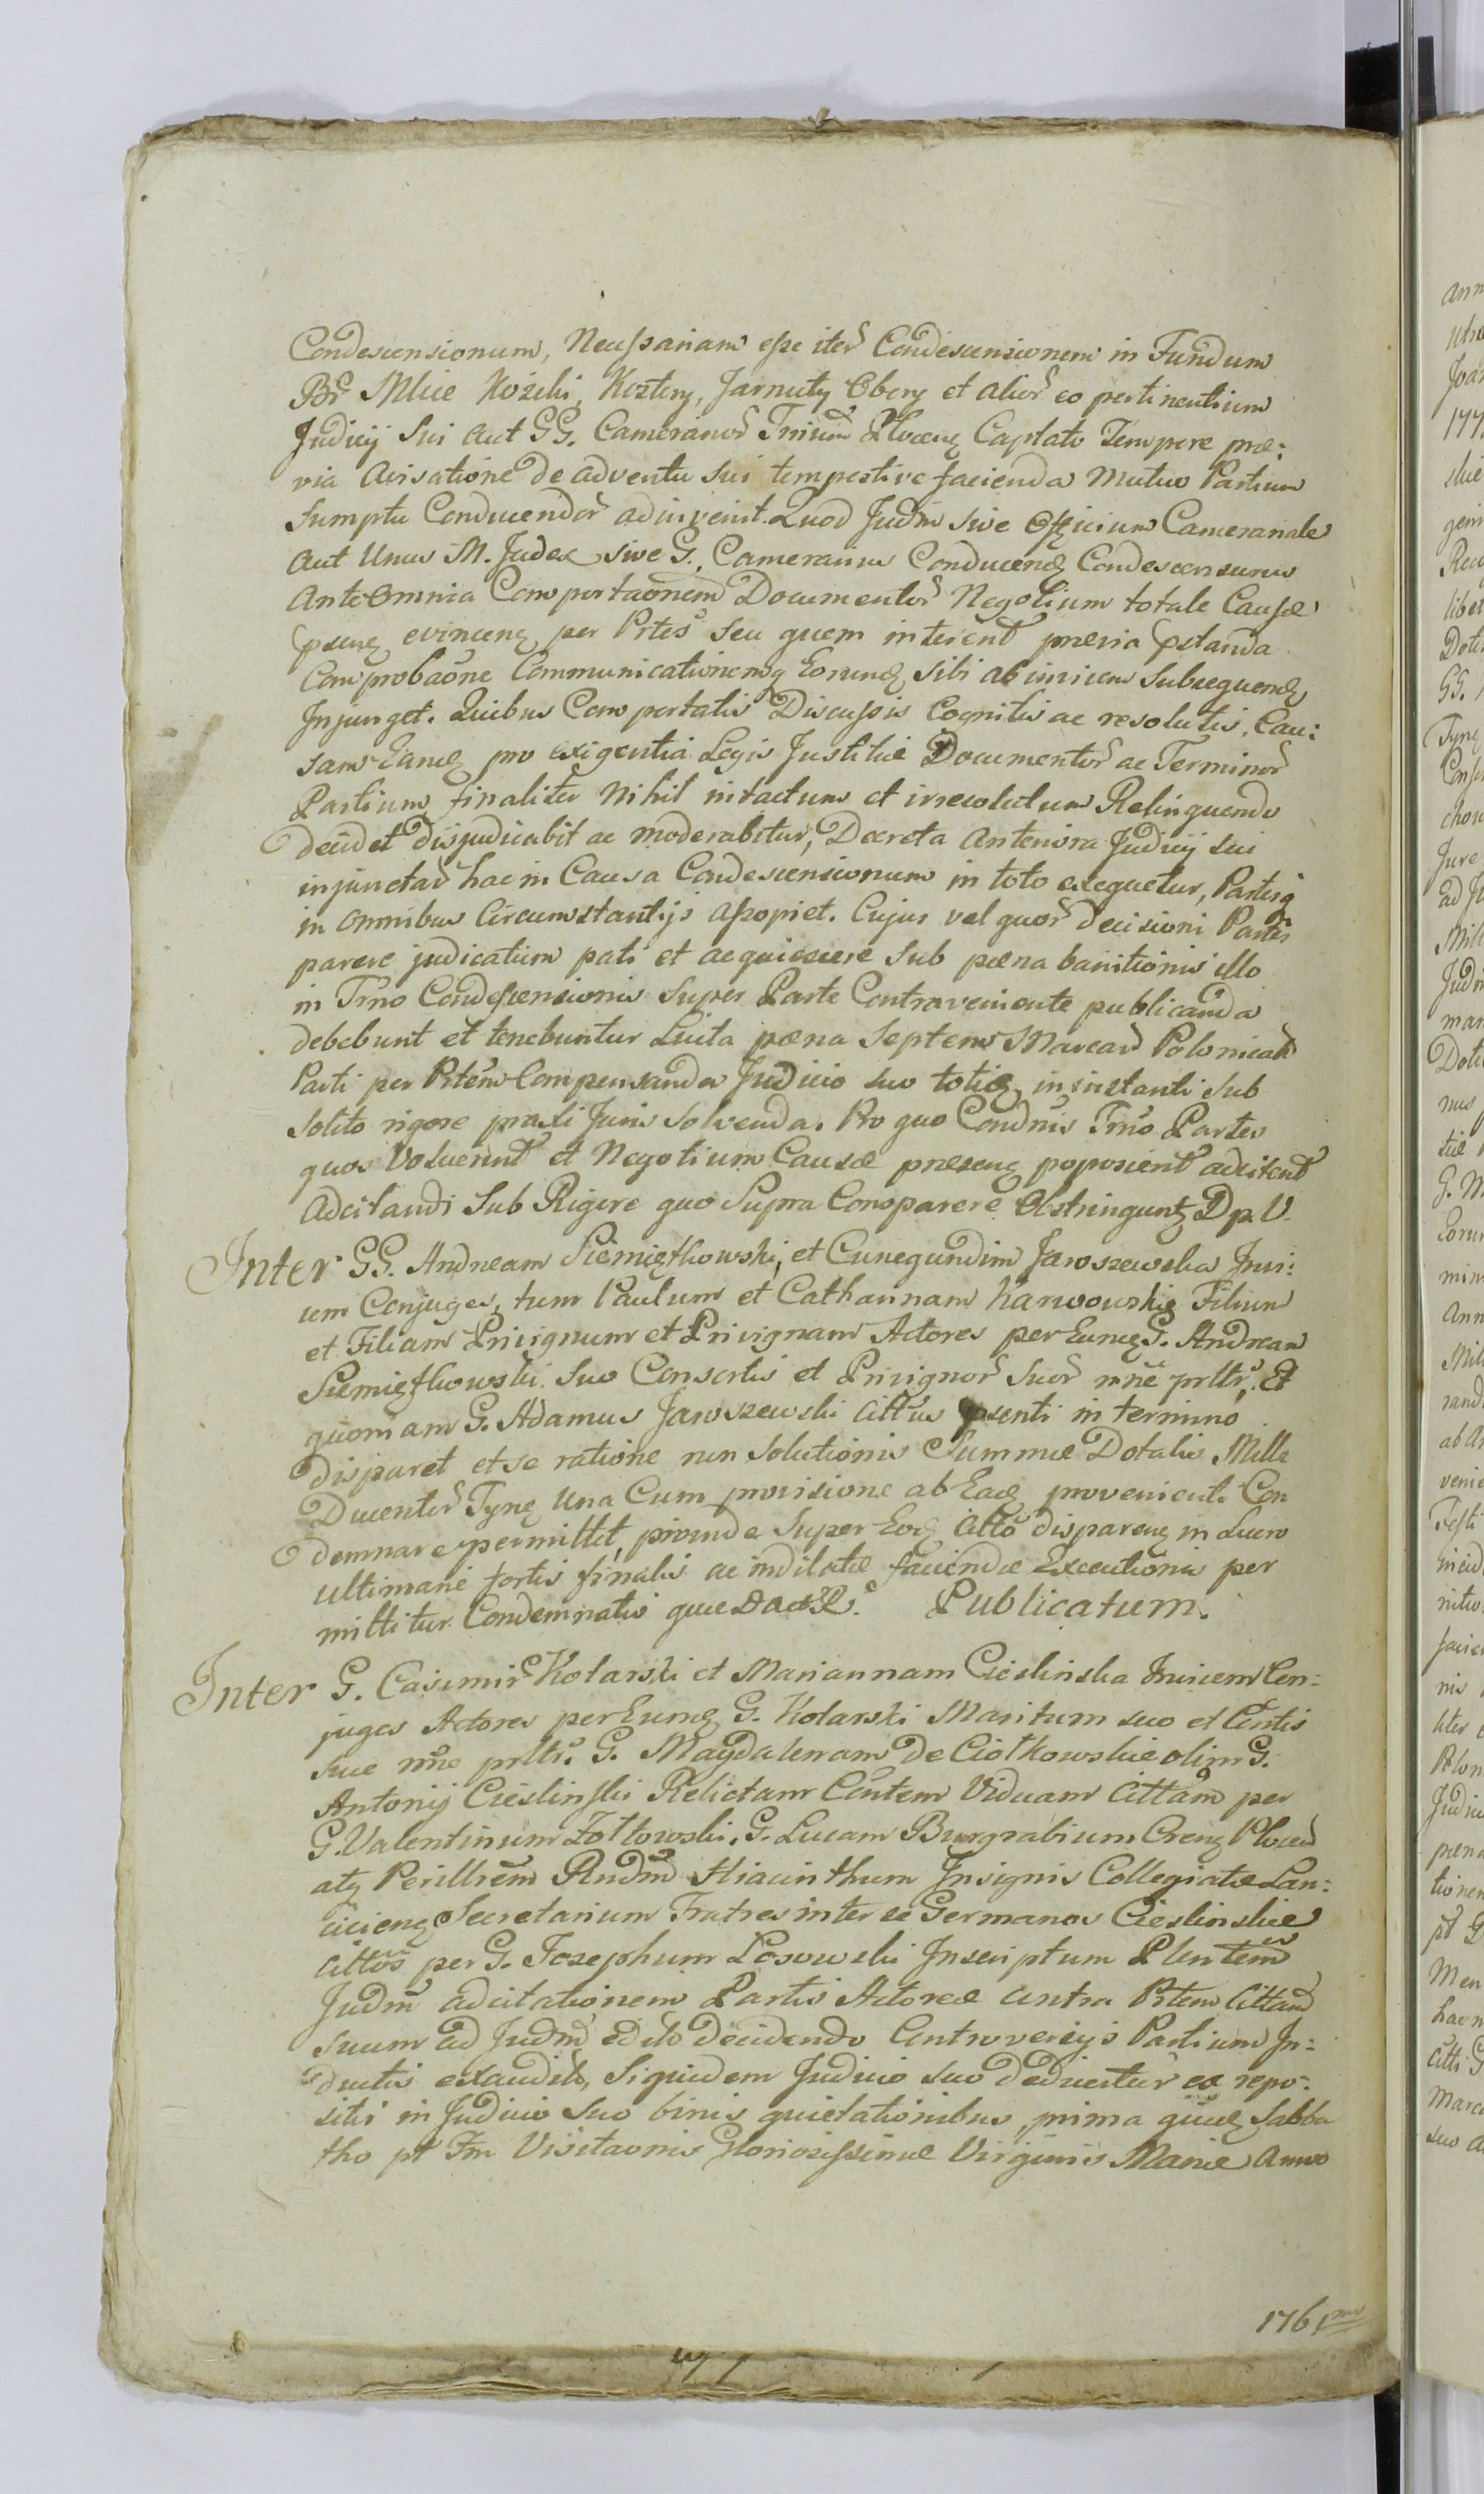 Condescensionum, Necessariam esse iter Condescensionem in Fundum
Br Mlice Kozelu, Kosztery, Jarnuty Obory et alior eo pertinentium
Judicij Sui aut GG. Camerarior Trium Plocen Captato Tempore præ:
via avisatione de adventu sui tempestive facienda Mutuo Partium
Sumptu Conducendor adinvenit. Quod Judm sive Officium Camerariale
aut Unus M. Judex sive G. Camerarius Conducend Condescensurus
ante omnia Comportaonem Documentor Negotium totale Causæ
psens evincens per Prtes seu quem interent prævia pstanda
Comprobaone Communicationemq Eorund sibi ab invicem subsequend
Injunget. Quibus Comportatis Discussis Cognitis ac resolutis, Cau:
sam Eand pro exigentia Legis Justitiæ Documentor ac Terminor
Partium finaliter Nihil intactum et irresolutum Relinquendo
decidet disjudicabit ac moderabitur, Decreta anteriora Judicij sui
injunctar hac in Causa Condescensionum in toto exequetur, Partesq
in omnibus Circumstantijs asopiet. Cujus vel quor decisioni Partes
parere judicatum pati et acquiescere sub pæna banitionis illo
in Trno Condescensionis super Parte Contraveniente publicanda
debebunt et tenebuntur Luita pæna Septem Marcar Polonicar
Parti per Prtem Compensanda Judicio suo toties in instanti sub
solito rigore prædi Juris Solvenda. Pro quo Condnis Trno Partes
quos Voluerint et Negotium Causæ præsens poposcerit adcitent
Adcitandi sub Rigore quo Supra Comparere Obstringunt D p. V.
Inter GG. Andream Siemiętkowski, et Cunegundim Jaroszewska Invi:
cem Conjuges, tum Paulum et Catharinam Karwowskie Filium
et Filiam Privignum et Privignam Actores per Eund G. Andream
Siemiętkowski suo Consortis et Privignor Suor nne prltr. Et
quoniam G. Adamus Jaroszewski Cittus psenti in termino
disparet et se ratione non Solutionis Summæ Dotalis Mille
Ducentor Tynf Una Cum provisione ab Ead provenienti Con
demnare permittit, proinde Super Eod Citto disparen in Lucro
ultimarie fortis finalis ac indilatæ faciendæ Executionis per
mittitur Condemnatis Publicatum.
Inter G. Casimir Kolarski et Mariannam Cieslinska Invicem Con:
juges Actores per Eund G. Kolarski Maritum suo et Contis
suæ nne prltr. G. Magdalenam De Ciołkowskie olim G.
Antonij Cieslinski Relictam Contem Viduam Cittam per
G. Valentinum Zołtowski, G. Lucam Burgrabium Cren Plocen
atq Perillrem Rndm Hiacinthum Insignis Collegiatæ Lan:
ciciens Secretarium Fratres inter se Germanos Cieslinskie
Cittos per G. Josephum Losowski Inscriptum Plentem
Judm ad citationem Partis Actoreæ contra Prtem Cittam
suum ad Judm edito decidendo Controversijs Partium In:
ductis exauditis, Siquidem Judicio suo deducitur ex repo:
sitis in Judicio Suo binis quietationibus, prima quid Sabba
tho pt Fm Visitaonis Gloriosissimæ Virginis Mariæ Anno
1761mo